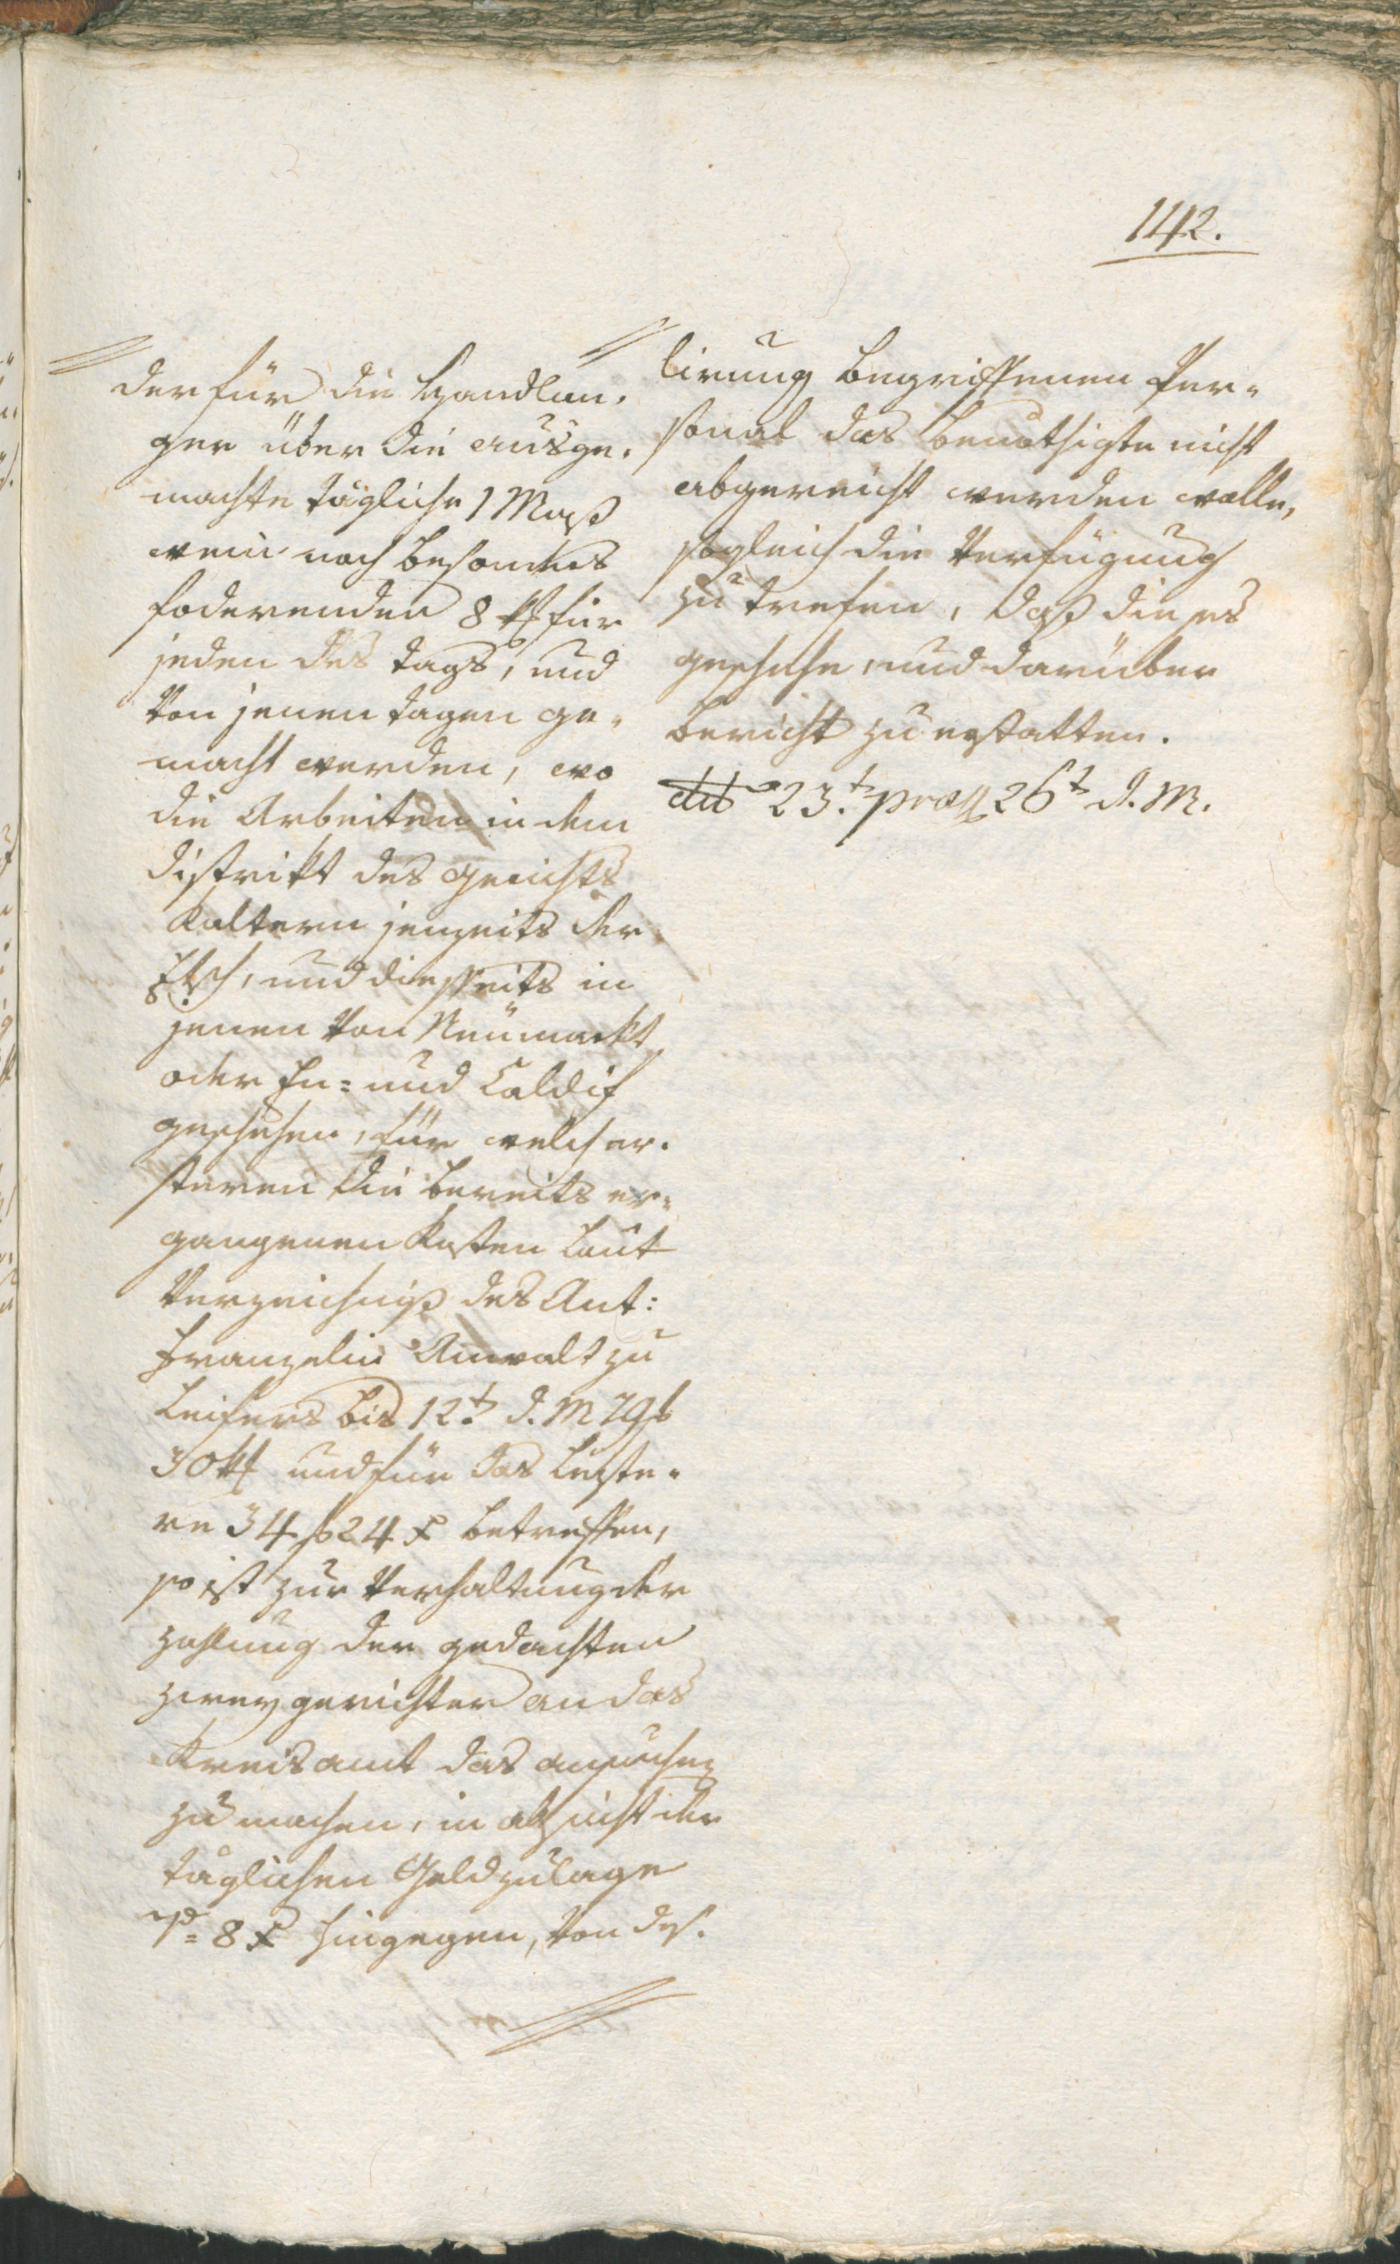 142.
der für die Handlan-
ger über die ausge-
machte tägliche 1 Maß
wein noch besonders
foderenden 8 kr für
jeden des tags, und
Von jenen tagen ge-
macht werden, wo
die Arbeiten in dem
distrikt des gerichts
Kaltern jenseits der
Etsch, und diesseits in
jenen Von Neumarkt
oder En= und Caldif
geschehen, für welch er-
steren die bereits er-
gangenen Kosten laut
Verzeichniß des Ant:
Franzelin Anwalt zu
Leifers bis 12.t d. M 79 f
30 kr und für das letzte-
re 34 f 24 x betreffen,
so ist zur Verhaltung der
zahlung der gedachten
zwey gerichter an das
Kreisamt das ansuchen
zu machen, in absicht der
täglichen Geldzulage
pr 8 x hingegen, Von des-
lirung begriffenen Per-
sonal das benöthigte nicht
abgereicht werden wolle,
sogleich die Verfügung
zu trefen, daß dieses
geschehe, und darüber
bericht zu erstatten.
dto 23.t præs 26t d. M.